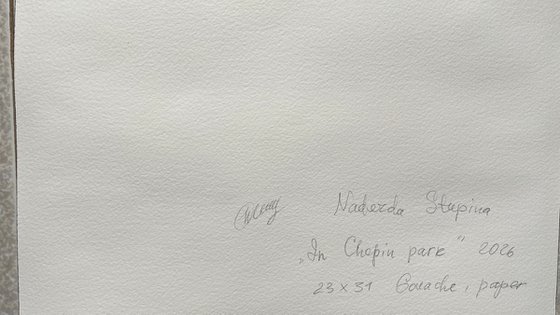 Nadezda Stupina
„In Chopin park” 2026
23 x 31 Gouache, paper